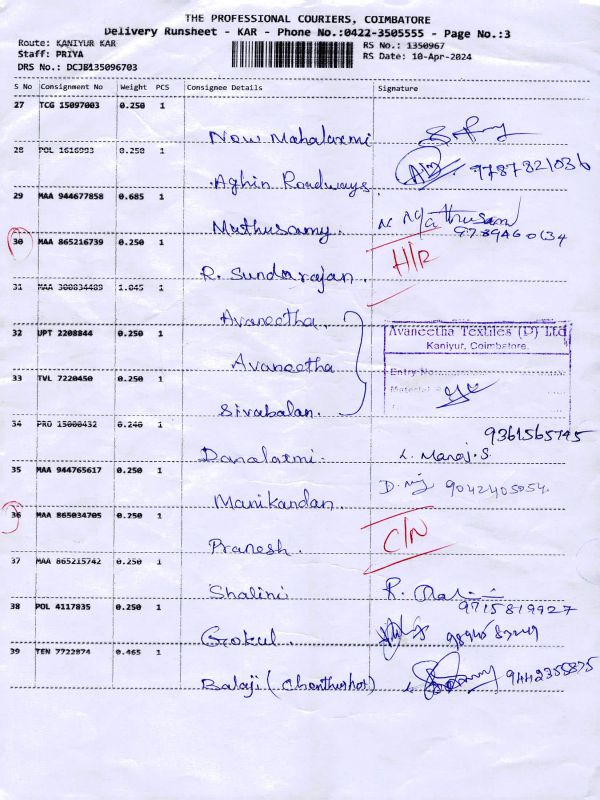 THE PROFESSIONAL COURIERS, COIMBATORE
Delivery Runsheet - KAR - Phone No.:0422-3505555 - Page No.:3
Route: KANIYUR KAR RS No.: 1350967
Staff: PRIYA RS Date: 10-Apr-2024
DRS No.: DCJB135096703
S No Consignment No Weight PCS Consignee Details Signature
27 TCG 15097003 0.250 1
Now Mahalaxmi
28 POL 1616993 0.250 1
Aghin Roadways 9787821036
29 MAA 944677858 0.685 1
Muthusamy.
30 MAA 865216739 0.250 1
R. Sundarajan. H/R
31 MAA 300834489 1.045 1
Avaneetha.
32 UPT 2208844 0.250 1
Avaneetha Textiles (P) Ltd
Kaniyur, Coimbatore.
Avaneetha
Entry No:
33 TVL 7220450 0.250 1
Sivabalan.
34 PRO 15000432 0.240 1
9361565745
Danalaxmi. L. Manoj.S.
35 MAA 944765617 0.250 1
Manikandan. 9042405054.
36 MAA 865034705 0.250 1
Pranesh. C/N
37 MAA 865215742 0.250 1
Shalini
38 POL 4117835 0.250 1
9715819927
Gokul.
39 TEN 7722874 0.465 1
Balaji 9442355875